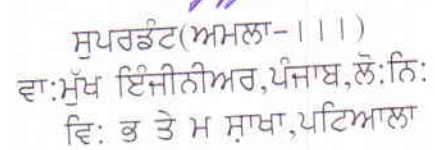 ਸੁਪਰਡੰਟ(ਅਮਲਾ-111)
ਵਾ:ਮੁੱਖ ਇੰਜੀਨੀਅਰ,ਪੰਜਾਬ,ਲੋ:ਨਿ:
ਵਿ: ਭ ਤੇ ਮ ਸ਼ਾਖਾ,ਪਟਿਆਲਾ